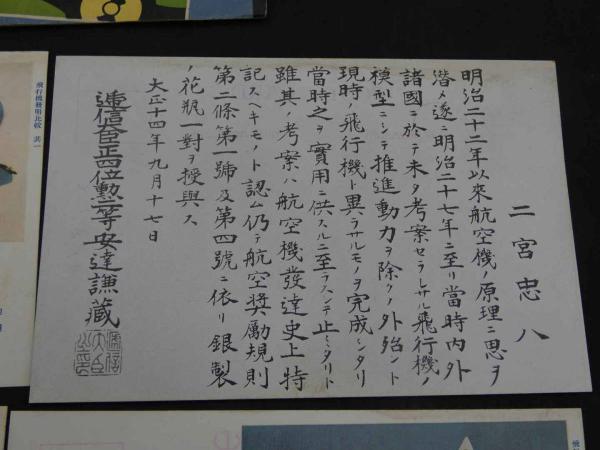 二宮忠八
明治二十二年以來航空機ノ原理ニ思ヲ
潜メ遂ニ明治二十七年ニ至リ當時內外
諸國ニ於テ未タ考案セラレサル飛行機ノ
模型ニシテ推進動力ヲ除クノ外殆ント
現時ノ飛行機ト異ラサルモノヲ完成シタリ
當時之ヲ實用ニ供スルニ至ラスシテ止ミタリト
雖其ノ考案ハ航空機發達史上特
記スヘキモノト認ム仍テ航空奬勵規則
第二條第一號及第四號ニ依リ銀製
ノ花瓶一對ヲ授與ス
大正十四年九月十七日
遞信大臣正四位勲一等安達謙藏
飛行機發明比較 其一